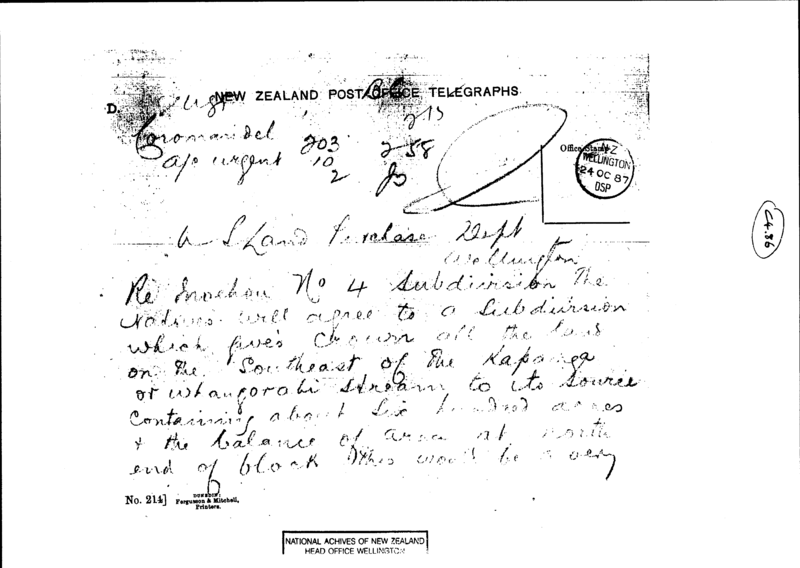 D.
Urgt
NEW ZEALAND POST OFFICE TELEGRAPHS.
Coromandel 203 2 58
a/o urgent 10
2
Office Stamp
N Z
WELLINGTON
24 OC 87
DSP
C4.86
U S Land Purchase Dept
Wellington
Re Moehau No 4 Subdivision The
Natives will agree to a Subdivision
which gives Crown all the land
on the Southeast of the Kapanga
or Whangarahi Stream to its Source
Containing about Six hundred acres
+ the balance of area at north
end of block this would be a very
No. 214]
DUNEDIN:
Fergusson & Mitchell,
Printers.
NATIONAL ACHIVES OF NEW ZEALAND
HEAD OFFICE WELLINGTON